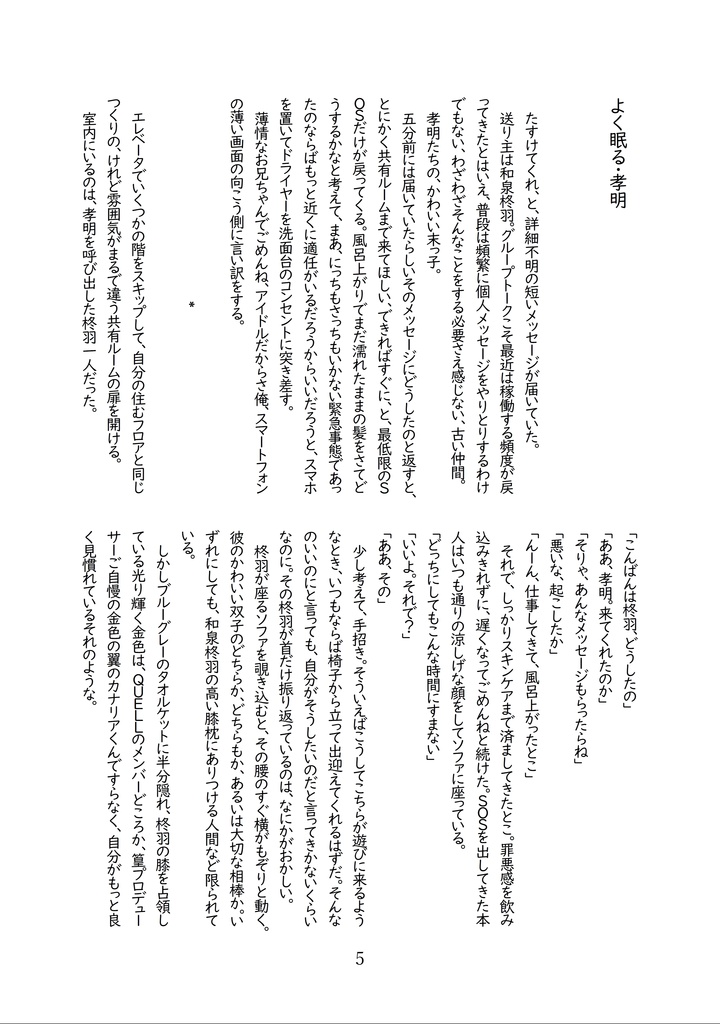 よく眠る・孝明
たすけてくれ、と、詳細不明の短いメッセージが届いていた。
送り主は和泉柊羽。グループトークこそ最近は稼働する頻度が戻
ってきたとはいえ、普段は頻繁に個人メッセージをやりとりするわけ
でもない、わざわざそんなことをする必要さえ感じない、古い仲間。
孝明たちの、かわいい末っ子。
五分前には届いていたらしいそのメッセージにどうしたのと返すと、
とにかく共有ルームまで来てほしい、できればすぐに、と、最低限のS
OSだけが戻ってくる。風呂上がりでまだ濡れたままの髪をさてど
うするかなと考えて、まあ、にっちもさっちもいかない緊急事態であっ
たのならばもっと近くに適任がいるだろうからいいだろうと、スマホ
を置いてドライヤーを洗面台のコンセントに突き差す。
薄情なお兄ちゃんでごめんね、アイドルだからさ俺、スマートフォン
の薄い画面の向こう側に言い訳をする。
*
エレベータでいくつかの階をスキップして、自分の住むフロアと同じ
つくりの、けれど雰囲気がまるで違う共有ルームの扉を開ける。
室内にいるのは、孝明を呼び出した柊羽一人だった。
「こんばんは柊羽、どうしたの」
「ああ、孝明。来てくれたのか」
「そりゃ、あんなメッセージもらったらね」
「悪いな、起こしたか」
「んーん、仕事してきて、風呂上がったとこ」
それで、しっかりスキンケアまで済ましてきたとこ。罪悪感を飲み
込みきれずに、遅くなってごめんねと続けた。SOSを出してきた本
人はいつも通りの涼しげな顔をしてソファに座っている。
「どっちにしてもこんな時間にすまない」
「いいよ。それで？」
「ああ、その」
少し考えて、手招き。そういえばこうしてこちらが遊びに来るよう
なとき、いつもならば椅子から立って出迎えてくれるはずだ。そんな
のいいのにと言っても、自分がそうしたいのだと言ってきかないくらい
なのに。その柊羽が首だけ振り返っているのは、なにかがおかしい。
柊羽が座るソファを覗き込むと、その腰のすぐ横がもぞりと動く。
彼のかわいい双子のどちらか、どちらもか、あるいは大切な相棒か。い
ずれにしても、和泉柊羽の高い膝枕にありつける人間など限られて
いる。
しかしブルーグレーのタオルケットに半分隠れ、柊羽の膝を占領し
ている光り輝く金色は、QUELLのメンバーどころか、篁プロデュー
サーご自慢の金色の翼のカナリアくんですらなく、自分がもっと良
く見慣れているそれのような。
5